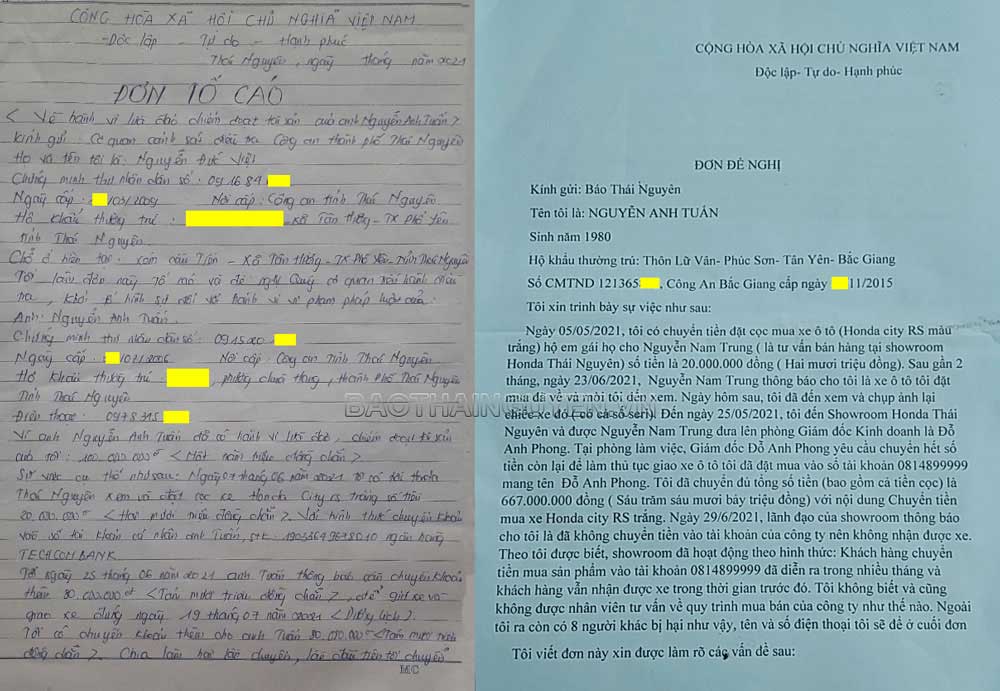 CỘNG HÒA XÃ HỘI CHỦ NGHĨA VIỆT NAM
Độc lập - Tự do - Hạnh phúc
Thái Nguyên, ngày tháng năm 2021
ĐƠN TỐ CÁO
< Về hành vi lừa đảo chiếm đoạt tài sản của anh Nguyễn Anh Tuấn >
Kính gửi: Cơ quan cảnh sát điều tra Công an thành phố Thái Nguyên
Họ và tên tôi là: Nguyễn Đức Việt
Chứng minh thư nhân dân số: 091684
Ngày cấp: /03/2009 Nơi cấp: Công an tỉnh Thái Nguyên
Hộ khẩu thường trú: xã Tân Hương - TX Phổ Yên
tỉnh Thái Nguyên
Chỗ ở hiện tại: xóm cầu Tiên - Xã Tân Hương - TX Phổ Yên - Tỉnh Thái Nguyên
Tôi làm đơn này tố cáo và đề nghị Quý cơ quan tiến hành điều
tra, khởi tố hình sự đối với hành vi vi phạm pháp luật của:
Anh: Nguyễn Anh Tuấn.
Chứng minh thư nhân dân số: 0915000
Ngày cấp: /07/2006 Nơi cấp: Công an Tỉnh Thái Nguyên
Hộ khẩu thường trú: , phường chùa Hang, thành phố Thái Nguyên
Tỉnh Thái Nguyên
Điện thoại: 0978315
Vì anh Nguyễn Anh Tuấn đã có hành vi lừa đảo, chiếm đoạt tài sản
của tôi: 100.000.000đ < Một trăm triệu đồng chẵn >.
Sự việc cụ thể như sau: Ngày 07 tháng 06 năm 2021 tôi có tới Honda
Thái Nguyên xem và đặt cọc xe Honda City rs trắng số tiền
20.000.000đ < Hai mươi triệu đồng chẵn >. Với hình thức chuyển khoản
vào số tài khoản cá nhân anh Tuấn, stk: ngân hàng
TECHCOMBANK
Tới ngày 25 tháng 06 năm 2021 anh Tuấn thông báo cần chuyển khoản
thêm 80.000.000đ < Tám mươi triệu đồng chẵn >, để giữ xe và
giao xe đúng ngày 19 tháng 07 năm 2021 < Dương lịch >.
Tôi có chuyển khoản thêm cho anh Tuấn 80.000.000đ < Tám mươi triệu
đồng chẵn >. Chia làm hai lần chuyển, lần đầu tiên tôi chuyển
CỘNG HÒA XÃ HỘI CHỦ NGHĨA VIỆT NAM
Độc lập- Tự do- Hạnh phúc
ĐƠN ĐỀ NGHỊ
Kính gửi: Báo Thái Nguyên
Tên tôi là: NGUYỄN ANH TUẤN
Sinh năm 1980
Hộ khẩu thường trú: Thôn Lữ Vân- Phúc Sơn- Tân Yên- Bắc Giang
Số CMTND 121365 , Công An Bắc Giang cấp ngày 11/2015
Tôi xin trình bày sự việc như sau:
Ngày 05/05/2021, tôi có chuyển tiền đặt cọc mua xe ô tô (Honda city RS màu
trắng) hộ em gái họ cho Nguyễn Nam Trung ( là tư vấn bán hàng tại showroom
Honda Thái Nguyên) số tiền là 20.000.000 đồng ( Hai mươi triệu đồng). Sau gần 2
tháng, ngày 23/06/2021, Nguyễn Nam Trung thông báo cho tôi là xe ô tô tôi đặt
mua đã về và mời tôi đến xem. Ngày hôm sau, tôi đã đến xem và chụp ảnh lại
chiếc xe đó ( có cả số seri). Đến ngày 25/05/2021, tôi đến Showroom Honda Thái
Nguyên và được Nguyễn Nam Trung đưa lên phòng Giám đốc Kinh doanh là Đỗ
Anh Phong. Tại phòng làm việc, Giám đốc Đỗ Anh Phong yêu cầu chuyển hết số
tiền còn lại để làm thủ tục giao xe ô tô tôi đã đặt mua vào số tài khoản 0814899999
mang tên Đỗ Anh Phong. Tôi đã chuyển đủ tổng số tiền (bao gồm cả tiền cọc) là
667.000.000 đồng ( Sáu trăm sáu mươi bảy triệu đồng) với nội dung Chuyển tiền
mua xe Honda city RS trắng. Ngày 29/6/2021, lãnh đạo của showroom thông báo
cho tôi là đã không chuyển tiền vào tài khoản của công ty nên không nhận được xe.
Theo tôi được biết, showroom đã hoạt động theo hình thức: Khách hàng chuyển
tiền mua sản phẩm vào tài khoản 0814899999 đã diễn ra trong nhiều tháng và
khách hàng vẫn nhận được xe trong thời gian trước đó. Tôi không biết và cũng
không được nhân viên tư vấn về quy trình mua bán của công ty như thế nào. Ngoài
tôi ra còn có 8 người khác bị hại như vậy, tên và số điện thoại tôi sẽ để ở cuối đơn
Tôi viết đơn này xin được làm rõ các vấn đề sau:
BAOTHAINGUYEN.VN